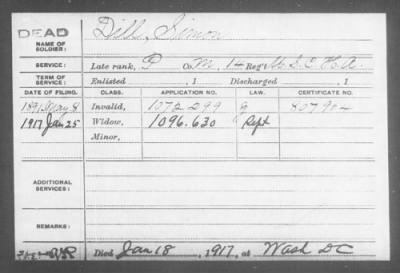 DEAD
NAME OF SOLDIER: Dill, Simon
SERVICE: Late rank, P Co. M, 1 Reg't U.S.C.H.A.
TERM OF SERVICE: Enlisted , 1 Discharged , 1
DATE OF FILING. CLASS. APPLICATION NO. LAW. CERTIFICATE NO.
1891 May 8 Invalid, 1072299 807904
1917 Jan 25 Widow, 1096.630 Rept
Minor,
ADDITIONAL SERVICES:
REMARKS:
Died Jan 18, 1917, at Wash DC